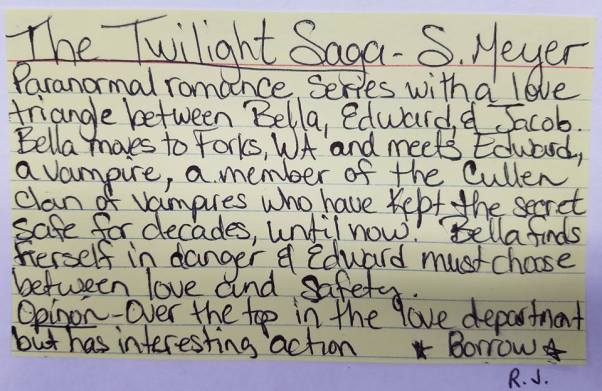 The Twilight Saga - S. Meyer
Paranormal romance series with a love
triangle between Bella, Edward, & Jacob.
Bella moves to Forks, WA and meets Edward,
a vampire, a member of the Cullen
clan of vampires who have kept the secret
safe for decades, until now. Bella finds
herself in danger & Edward must choose
between love and safety.
Opinon - Over the top in the love department
but has interesting action ★ Borrow ★
R.J.